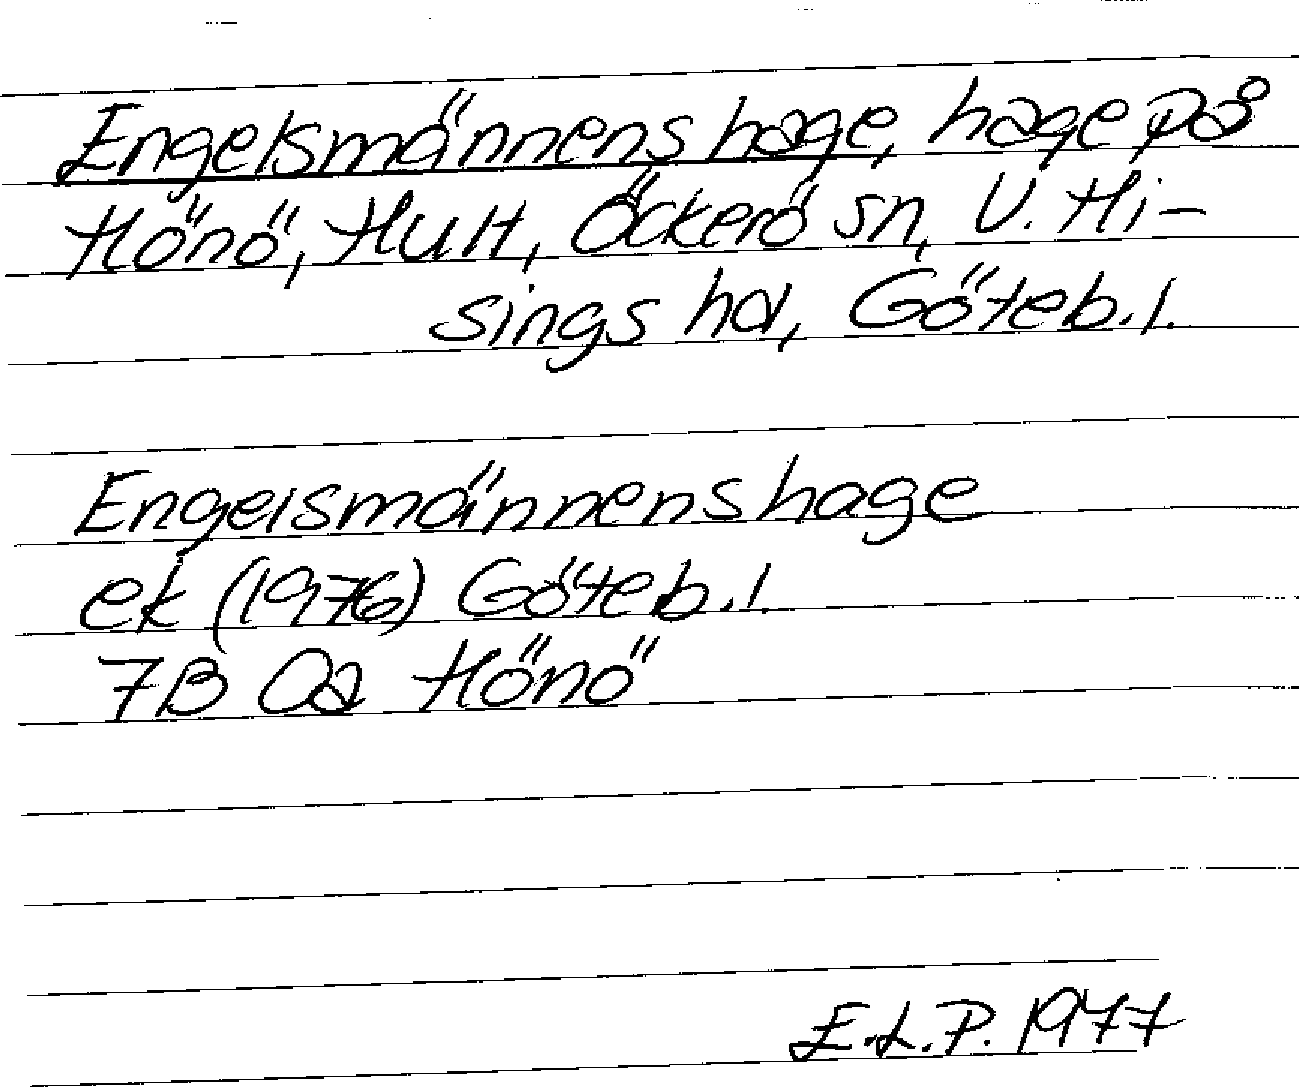 Engelsmännens hage, hage på
Hönö, Hult, Öckerö sn, V. Hi-
sings hd, Göteb. l.
Engelsmännens hage
ek (1976) Göteb. l.
7B 0a Hönö
E.L.P. 1977